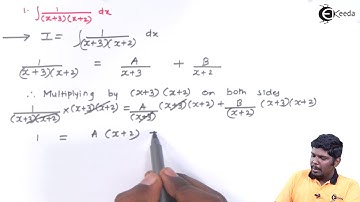 Ekeeda
1. ∫ 1/((x+3)(x+2)) dx
→ I = ∫ 1/((x+3)(x+2)) dx
1/((x+3)(x+2)) = A/(x+3) + B/(x+2)
∴ Multiplying by (x+3)(x+2) on both sides
1/((x+3)(x+2)) × (x+3)(x+2) = A/(x+3) (x+3)(x+2) + B/(x+2) (x+3)(x+2)
1 = A (x+2)